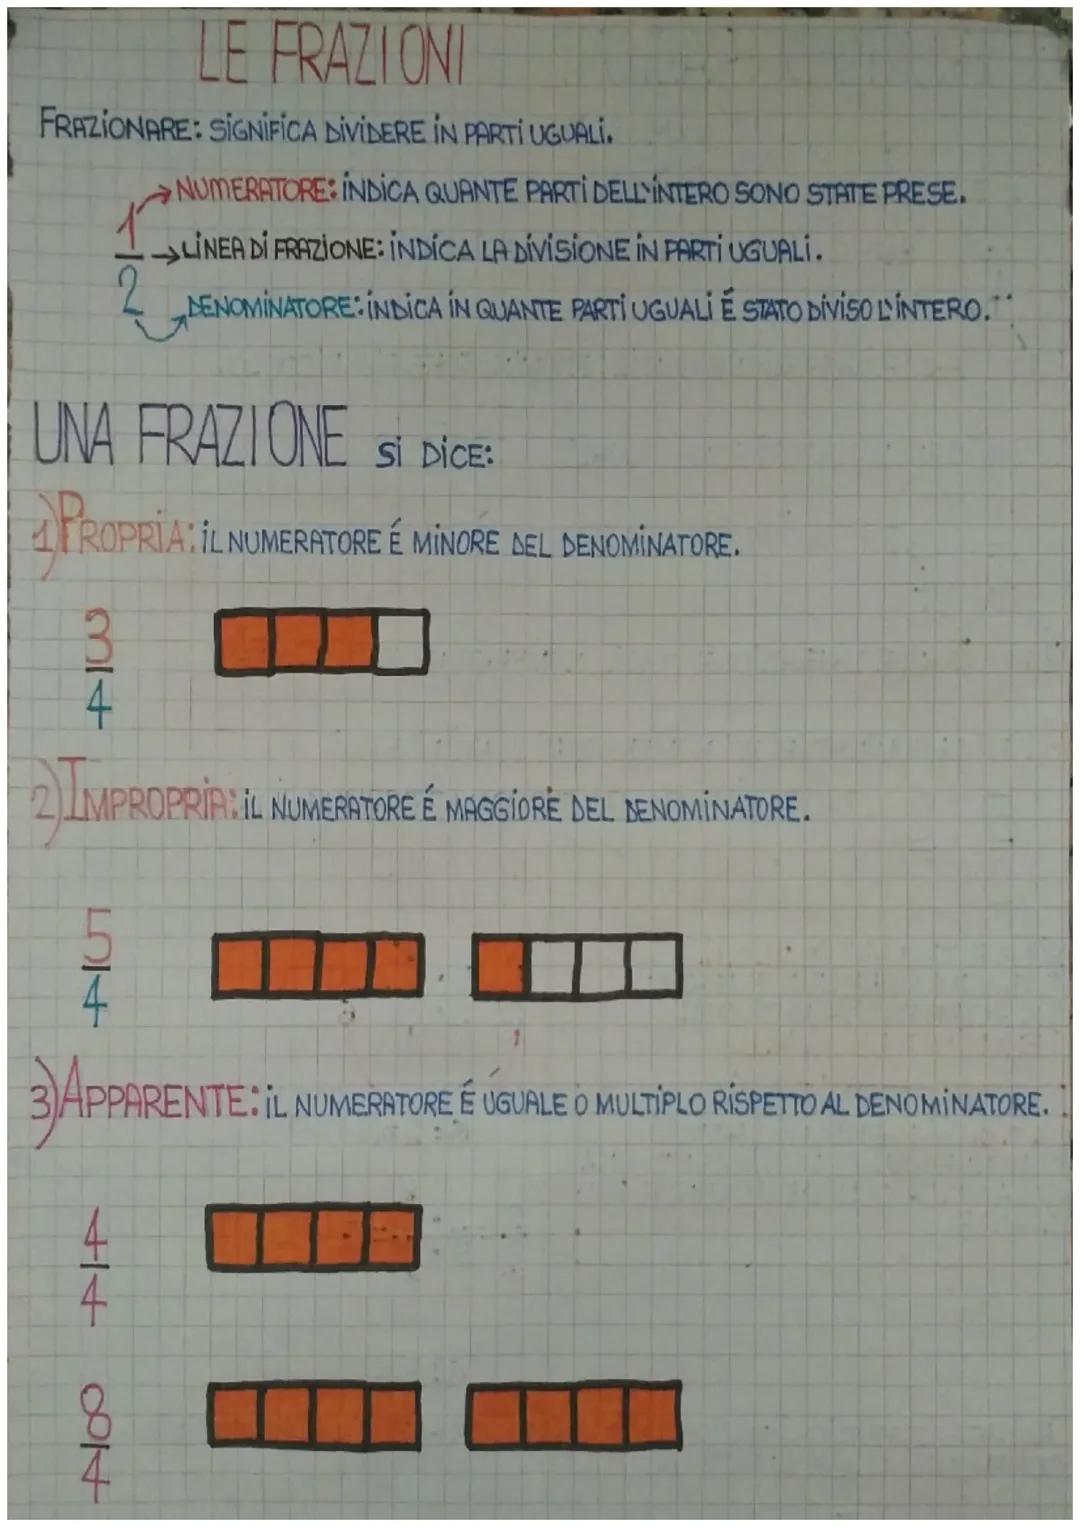 LE FRAZIONI
FRAZIONARE: SIGNIFICA DIVIDERE IN PARTI UGUALI.
1
NUMERATORE: INDICA QUANTE PARTI DELL'INTERO SONO STATE PRESE.
LINEA DI FRAZIONE: INDICA LA DIVISIONE IN PARTI UGUALI.
2
DENOMINATORE: INDICA IN QUANTE PARTI UGUALI É STATO DIVISO L'INTERO.
UNA FRAZIONE SI DICE:
1) PROPRIA: IL NUMERATORE É MINORE DEL DENOMINATORE.
3
4
2) IMPROPRIA: IL NUMERATORE É MAGGIORE DEL DENOMINATORE.
5
4
3) APPARENTE: IL NUMERATORE É UGUALE O MULTIPLO RISPETTO AL DENOMINATORE.
4
4
8
4